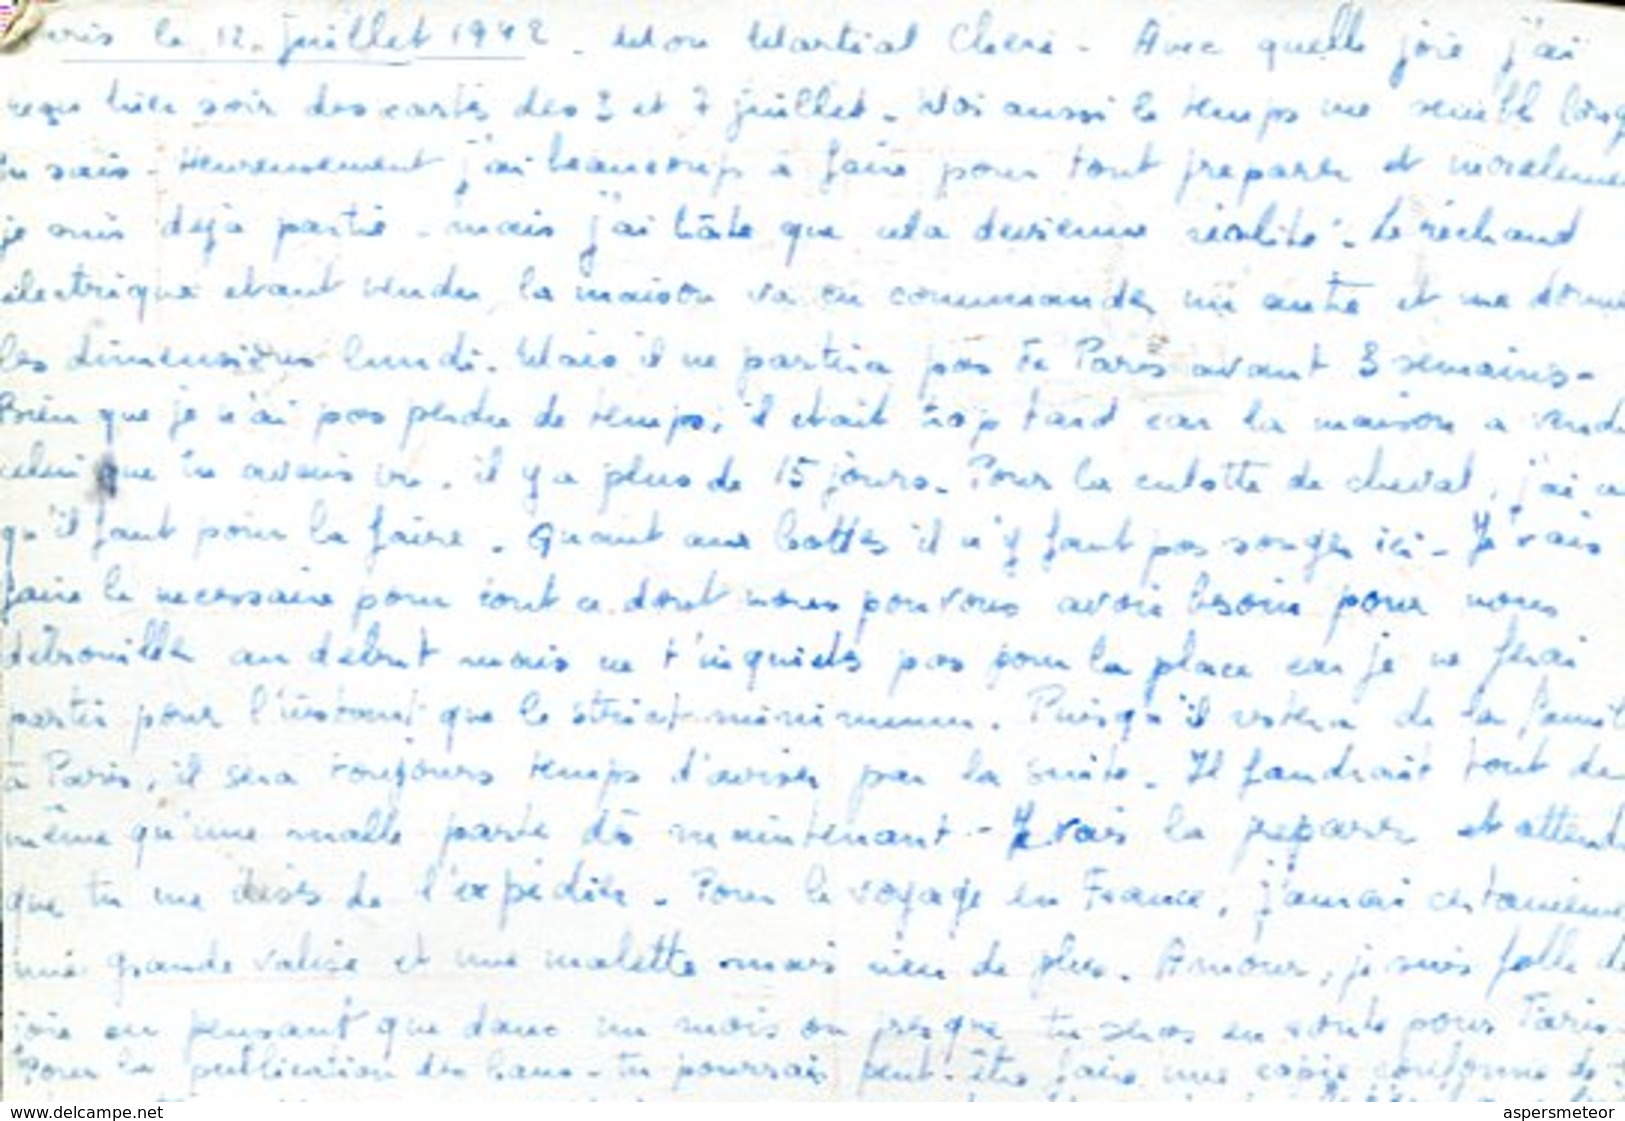 Paris le 12. juillet 1942 - Mon Martial Cheri - Avec quelle joie j'ai
reçu hier soir des cartes des 3 et 7 juillet. Moi aussi le temps me semble long
tu sais - Heureusement j'ai beaucoup à faire pour tout preparer et moralement
je suis dejà partie - mais j'ai hâte que cela devienne réalité. Le réchaud
électrique etant vendu, la maison va en commander un autre et me donner
les dimensions lundi. Mais il ne partira pas de Paris avant 3 semaines -
Bien que je n'ai pas perdu de temps, il etait trop tard car la maison a vendu
celui que tu avais vu, il y a plus de 15 jours. Pour la culotte de cheval, j'ai ce
qu'il faut pour la faire. Quant aux bottes il n'y faut pas songer ici - Je vais
faire le necessaire pour tout ce dont nous pouvons avoir besoin pour nous
débrouiller au debut mais ne t'inquiets pas pour la place car je ne ferai
partir pour l'instant que le strict minimum. Puisqu'il restera de la famille
à Paris, il sera toujours temps d'aviser par la suite. Il faudrait tout de
même qu'une malle parte dès maintenant - Je vais la preparer et attendre
que tu me dises de l'expédier. Pour le voyage en France, j'aurai certainement
une grande valise et une malette mais rien de plus. Amour, je suis folle de
joie en pensant que dans un mois ou presque tu seras en route pour Paris.
Pour la publication des bans - tu pourrais peut-être faire une copie conforme de
delcampe.net
aspersmeteor